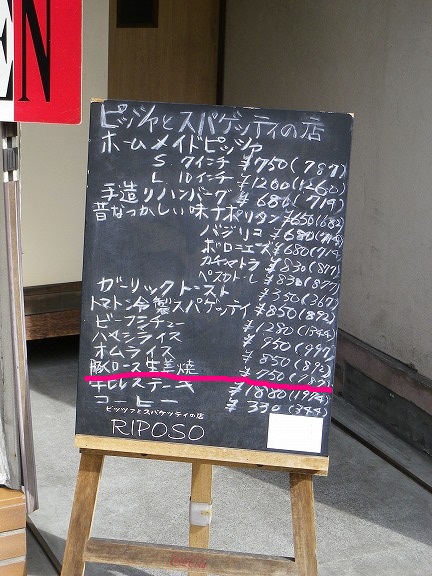 EN
ピッツァとスパゲッティの店
ホームメイドピッツァ
S 7インチ ¥750(787)
L 10インチ ¥1200(1260)
手造りハンバーグ ¥680(714)
昔なつかしい味ナポリタン ¥650(682)
バジリコ ¥680(714)
ボローニェーズ ¥680(714)
カチャトラ ¥830(871)
ペスカトーレ ¥830(871)
ガーリックトースト ¥350(367)
トマトン冷製スパゲティ ¥850(892)
ビーフシチュー ¥1280(1344)
ハヤシライス ¥950(997)
オムライス ¥850(892)
豚ロース生姜焼 ¥750
ヒレステーキ ¥1880(1974)
コーヒー ¥330
ピッツァとスパゲッティの店
RIPOSO